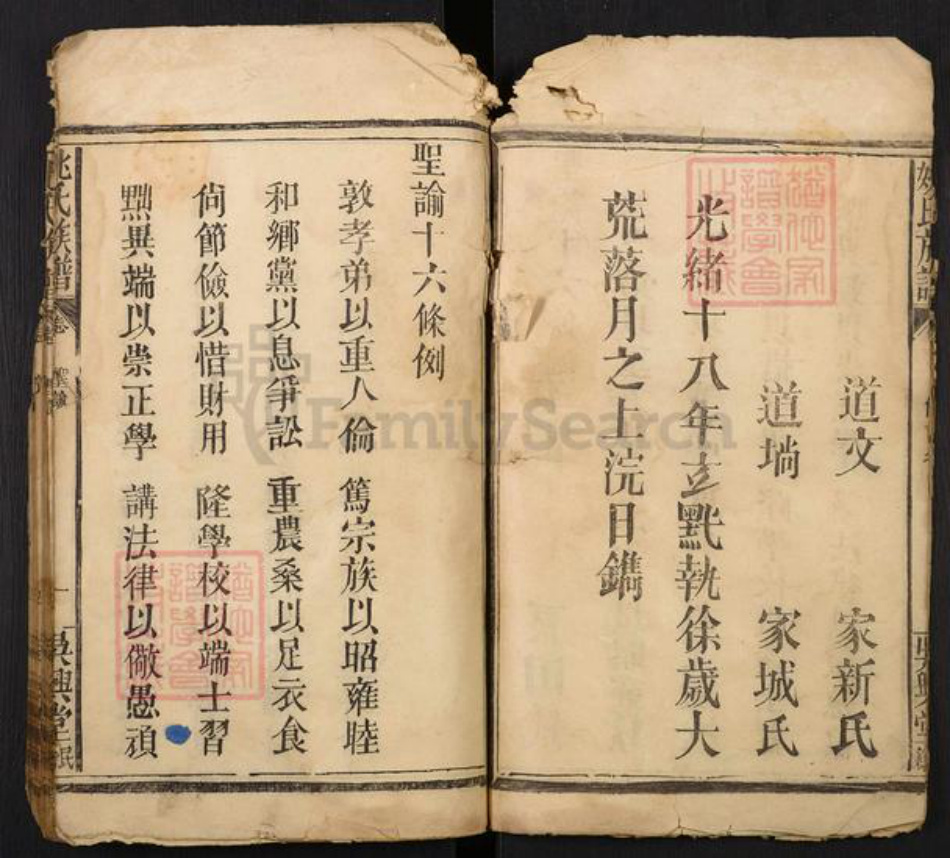 道文 家新氏
道埫 家城氏
光緒十八年立黓執徐歲大
荒落月之上浣日鐫
聖諭十六條例
敦孝弟以重人倫 篤宗族以昭雍睦
和鄉黨以息爭訟 重農桑以足衣食
尙節儉以惜財用 隆學校以端士習
黜異端以崇正學 講法律以儆愚頑
姚氏族譜
吳興堂
姚氏族譜
吳興堂
FamilySearch